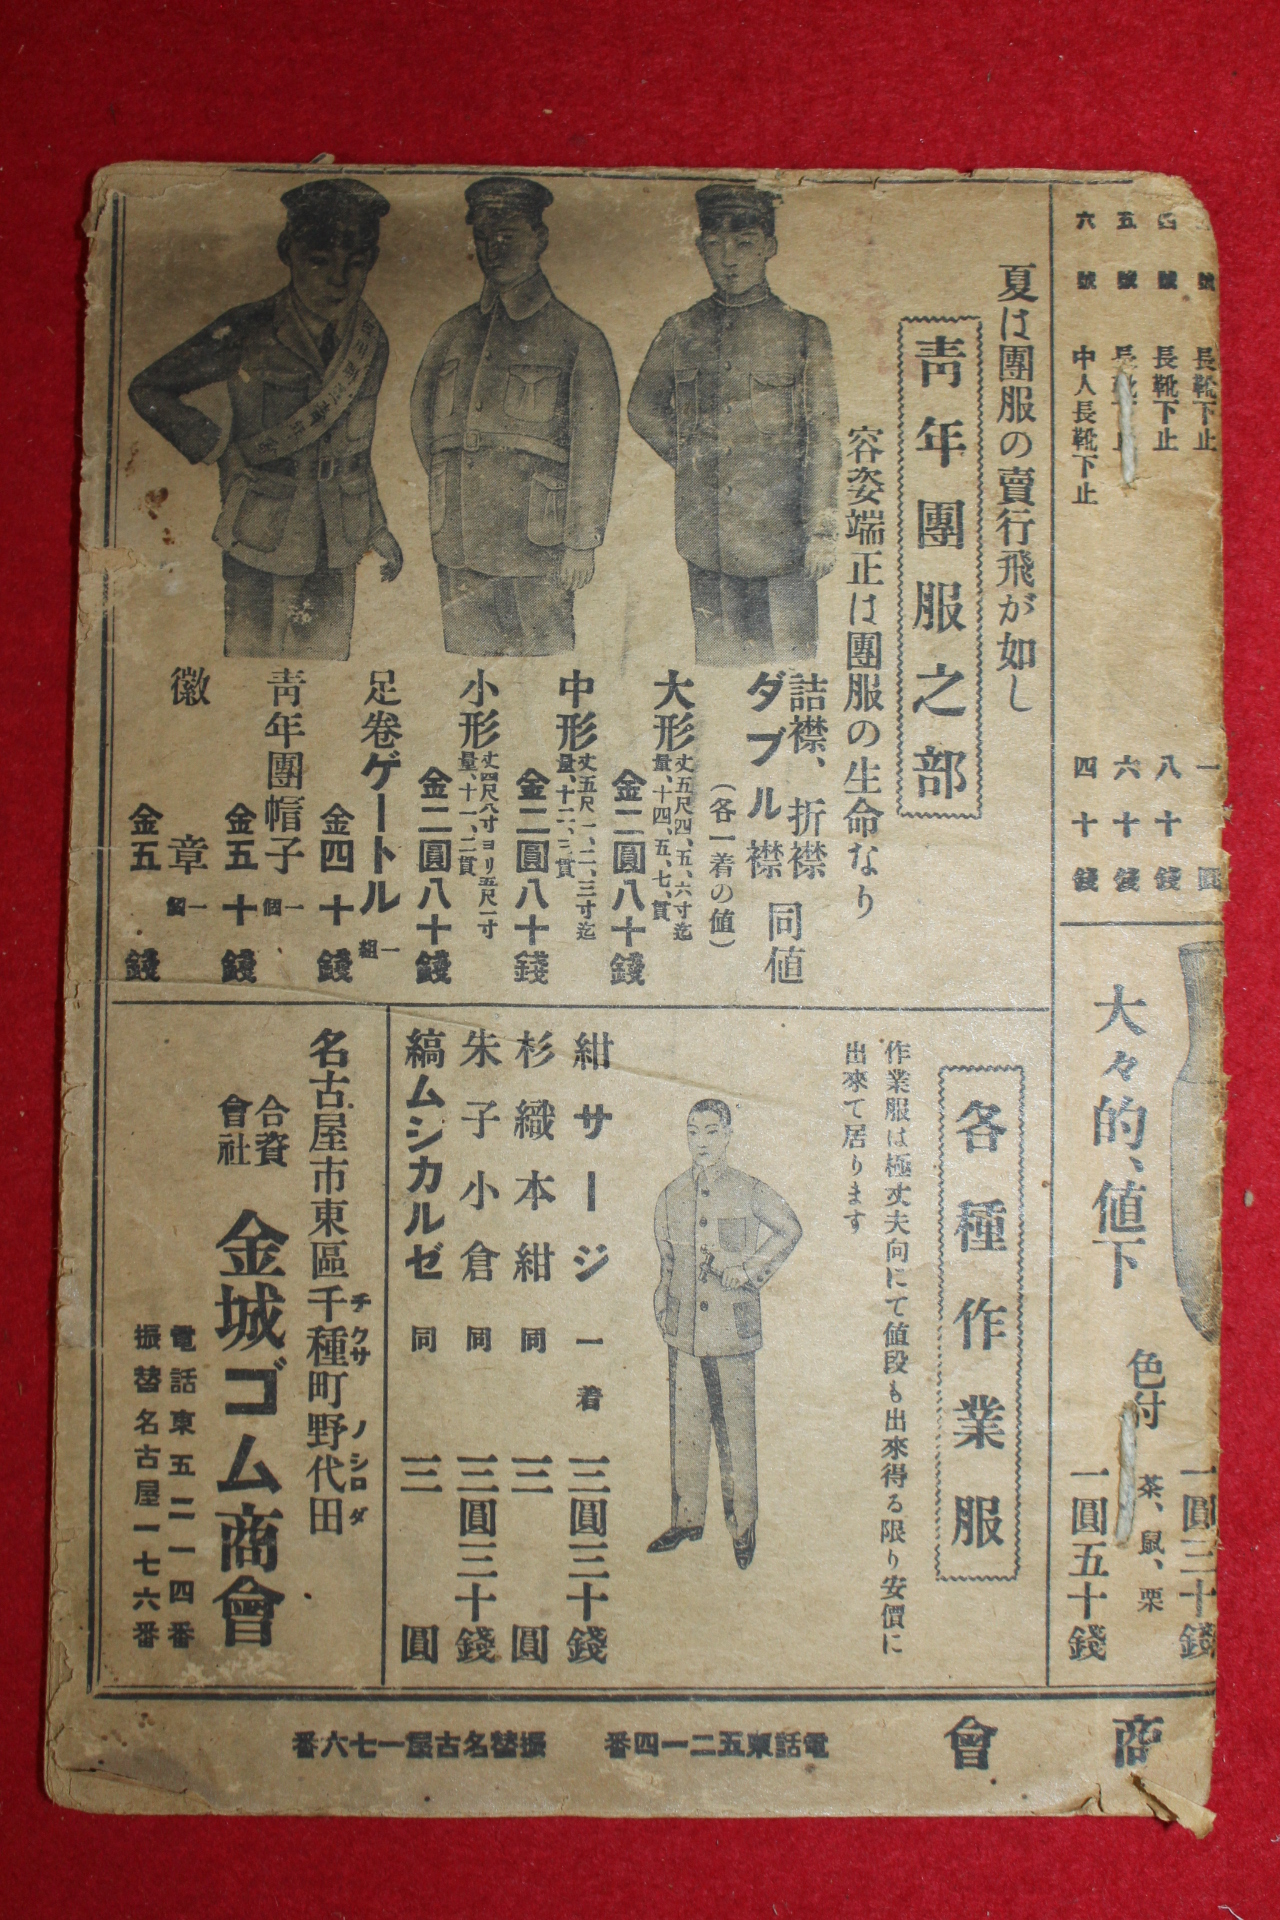 號 長靴下止 一圓
四號 長靴下止 八十錢
五號 長靴下止 六十錢
六號 中人長靴下止 四十錢
夏は團服の賣行飛が如し
靑年團服之部
容姿端正は團服の生命なり
詰襟、折襟
ダブル襟
同値
(各一着の値)
大形 丈五尺四、五、六寸迄
量、十四、五、七、貫
金二圓八十錢
中形 丈五尺一、二、三寸迄
量、十二、三貫
金二圓八十錢
小形 丈四尺八寸ヨリ五尺一寸
量、十一、二貫
金二圓八十錢
足卷ゲートル 一組
金四十錢
靑年團帽子 一個
金五十錢
徽章 一個
金五錢
大々的、値下
色付 茶、鼠、栗
一圓三十錢
一圓五十錢
各種作業服
作業服は極丈夫向にて値段も出來得る限り安價に
出來て居ります
紺サージ 一着 三圓三十錢
杉織本紺 同 三圓
朱子小倉 同 三圓三十錢
縞ムシカルゼ 同 三圓
名古屋市東區千種町野代田
チクサ ノシロダ
合資會社 金城ゴム商會
電話東五二一四番
振替名古屋一七六番
商會
電話東五二一四番 振替名古屋一七六番